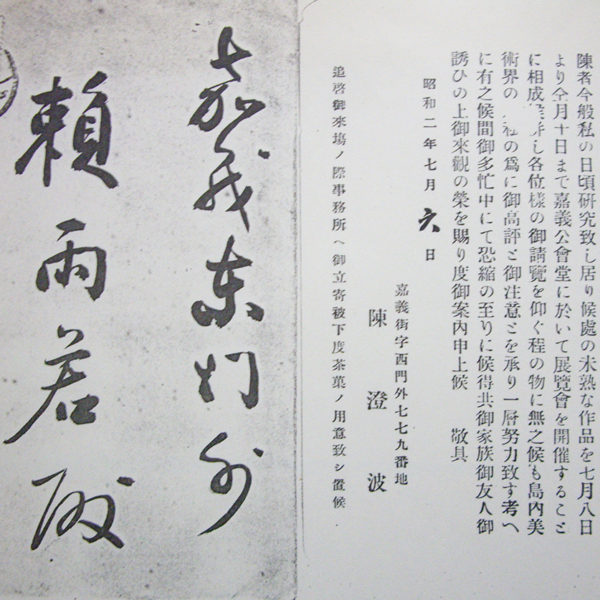 陳者今般私の日頃研究致し居り候處の未熟な作品を七月八日
より仝月十日まで嘉義公會堂に於いて展覽會を開催すること
に相成候 し各位樣の御請覽を仰ぐ程の物に無之候も島內美
術界の 爲に御高評と御注意とを承り一層努力致す考へ
に有之候間御多忙中にて恐縮の至りに候得共御家族御友人御
誘ひの上御來觀の榮を賜り度御案內申上候 敬具
昭和二年七月六日
嘉義街字西門外七七九番地
陳澄波
追啓御來場ノ際事務所ヘ御立寄被下度茶菓ノ用意致シ置候
嘉義東门外
賴雨若殿